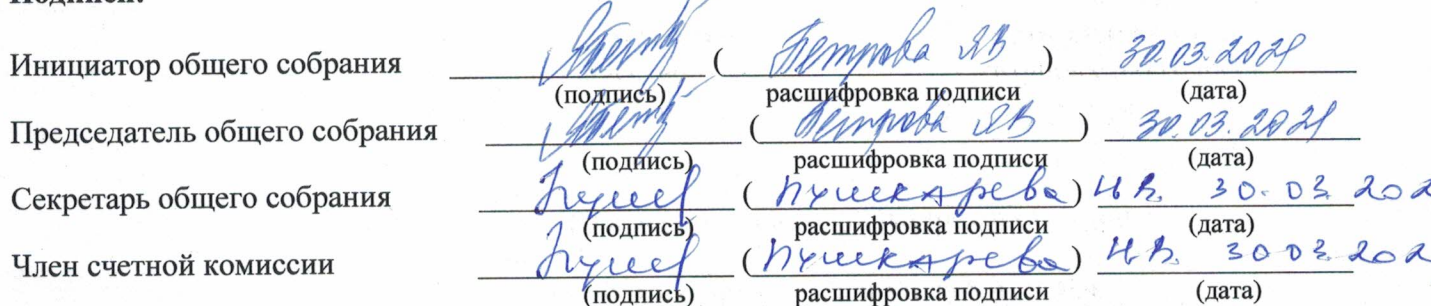 Инициатор общего собрания ( Петрова ЯВ ) 30.03.2021
(подпись) расшифровка подписи (дата)
Председатель общего собрания ( Петрова ЯВ ) 30.03.2021
(подпись) расшифровка подписи (дата)
Секретарь общего собрания ( Пушкарева ) Н.В. 30.03.202
(подпись) расшифровка подписи (дата)
Член счетной комиссии ( Пушкарева ) Н.В. 30 03.202
(подпись) расшифровка подписи (дата)